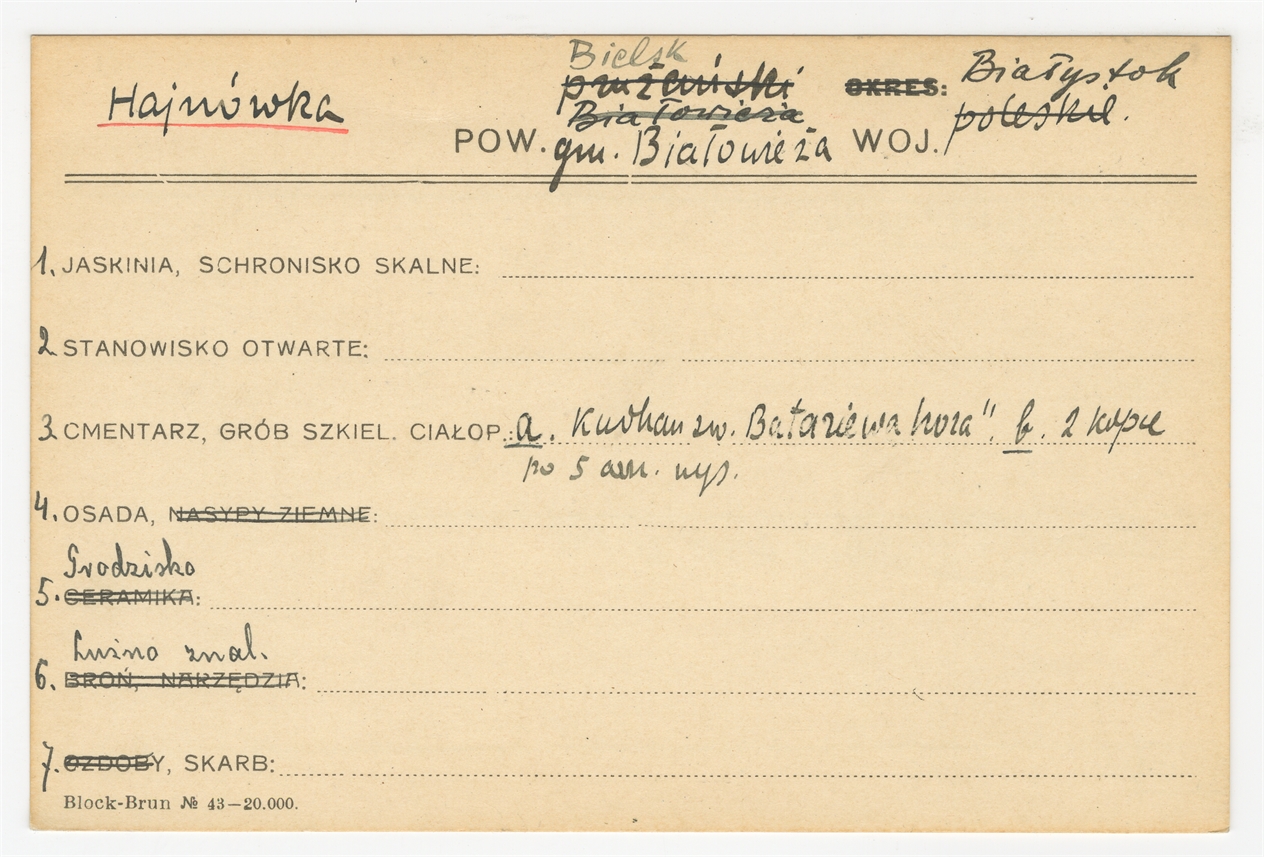 Hajnówka
Bielsk
prużański OKRES: Białystok
Białowieża poleskie.
POW. gm. Białowieża WOJ.
1. JASKINIA, SCHRONISKO SKALNE:
2 STANOWISKO OTWARTE:
3 CMENTARZ, GRÓB SZKIEL. CIAŁOP.: a. Kurhan zw. Batariewa hora". b. 2 kopce
po 5 wys.
4. OSADA, NASYPY ZIEMNE:
Grodzisko
5. CERAMIKA:
Luźno znal.
6. BROŃ, NARZĘDZIA:
7. OZDOBY, SKARB:
Block-Brun № 43—20.000.